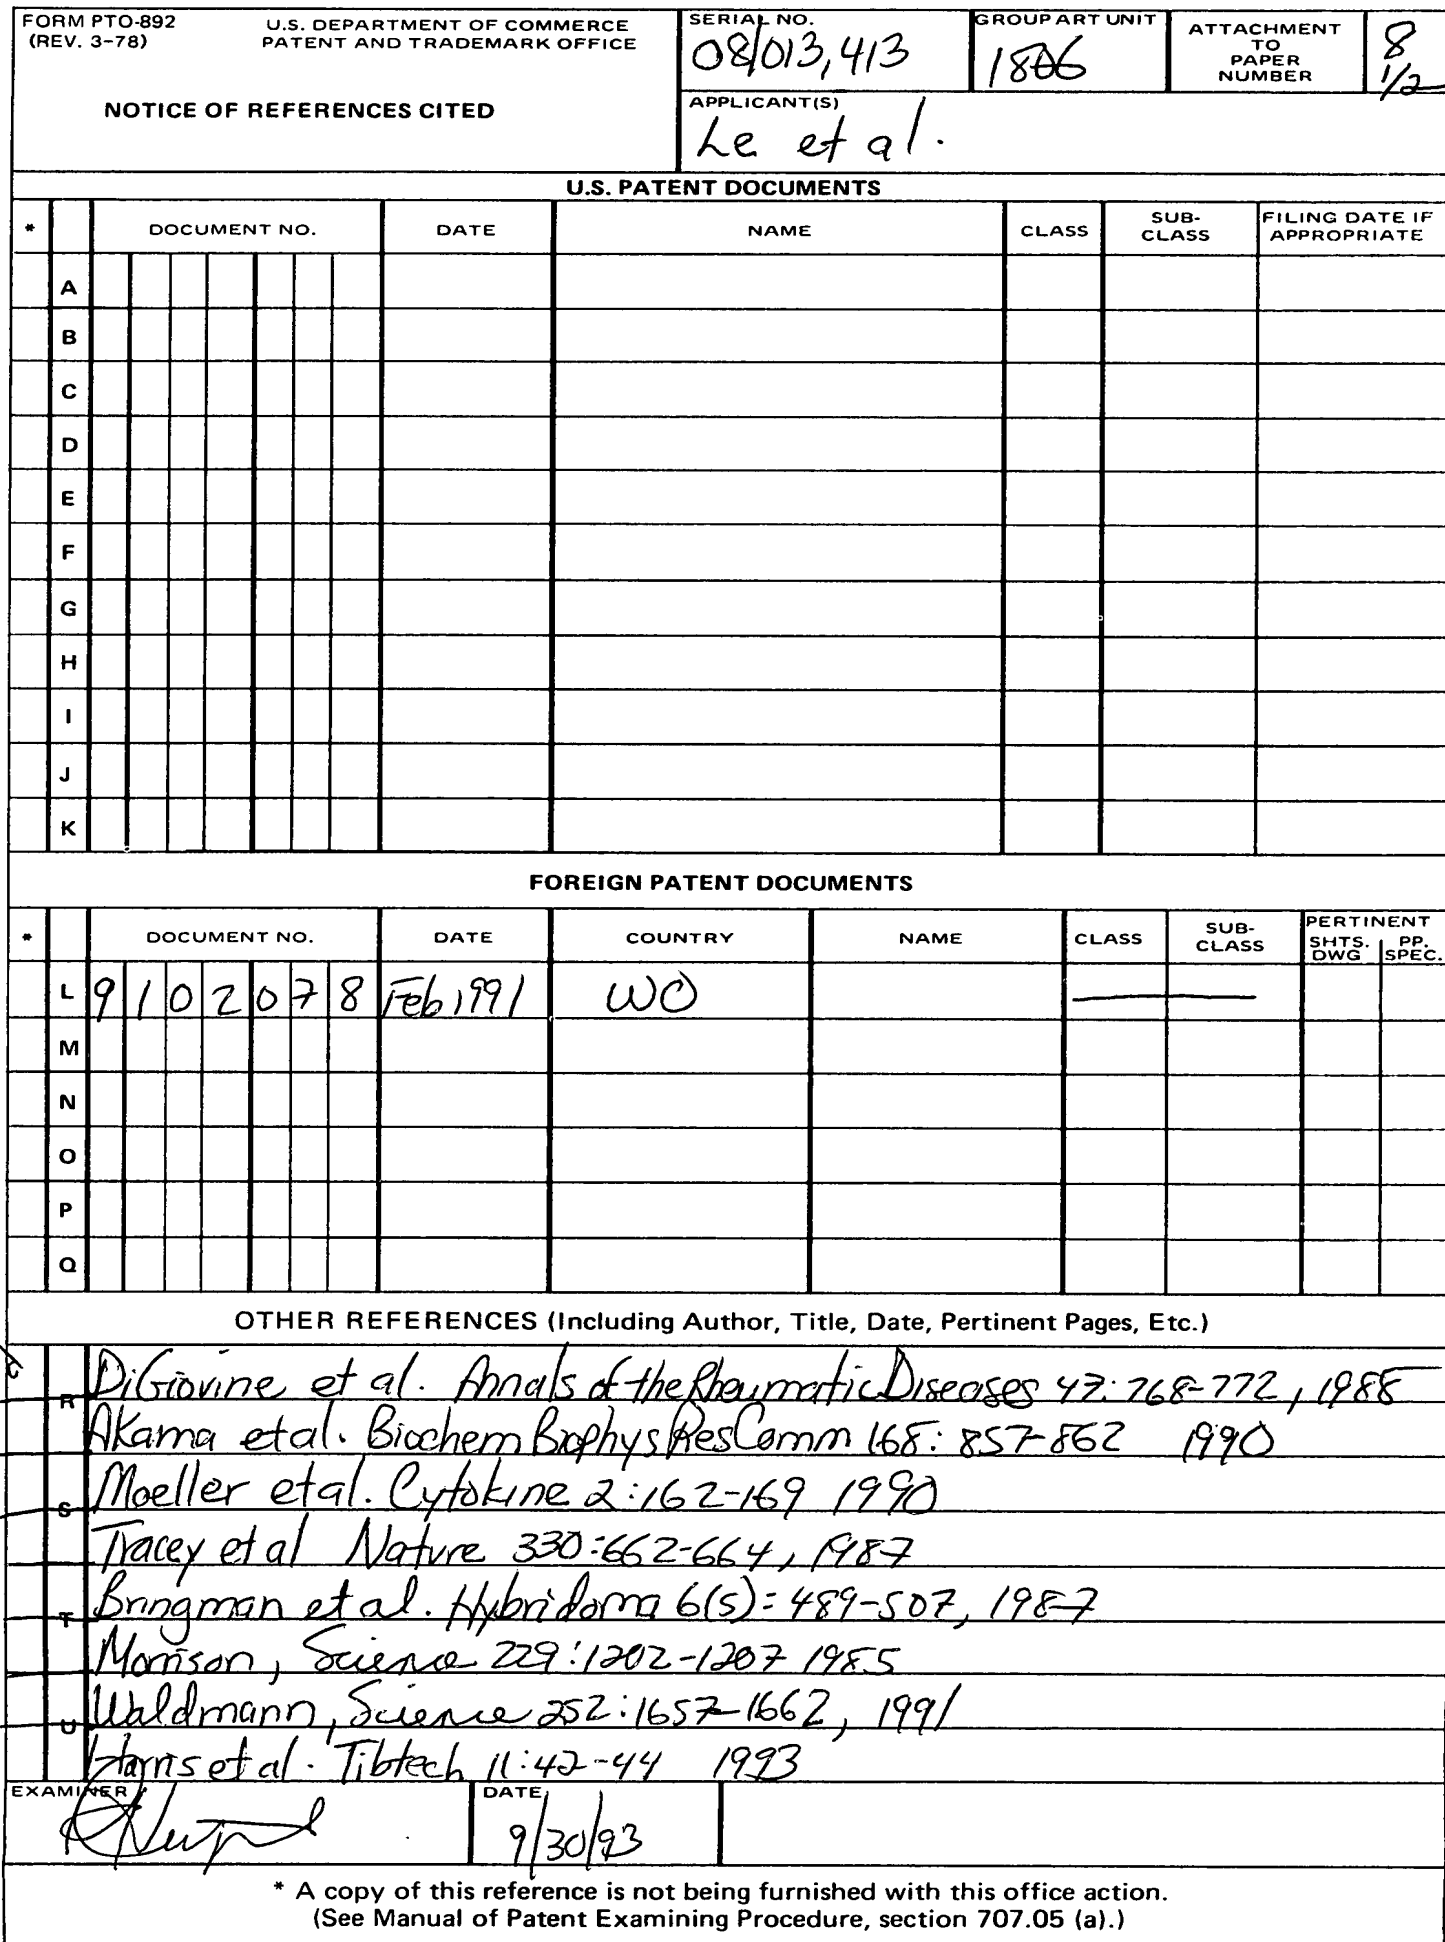 FORM PTO-892
(REV. 3-78)
U.S. DEPARTMENT OF COMMERCE
PATENT AND TRADEMARK OFFICE
NOTICE OF REFERENCES CITED
SERIAL NO.
08/013,413
GROUP ART UNIT
1806
ATTACHMENT
TO
PAPER
NUMBER
8
1/2
APPLICANT(S)
Le et al.
U.S. PATENT DOCUMENTS
* DOCUMENT NO. DATE NAME CLASS SUB-CLASS FILING DATE IF APPROPRIATE
A
B
C
D
E
F
G
H
I
J
K
FOREIGN PATENT DOCUMENTS
* DOCUMENT NO. DATE COUNTRY NAME CLASS SUB-CLASS PERTINENT SHTS. DWG PP. SPEC.
L 9 1 0 2 0 7 8 Feb 1991 WO
M
N
O
P
Q
OTHER REFERENCES (Including Author, Title, Date, Pertinent Pages, Etc.)
R DiGiovine et al. Annals of the Rheumatic Diseases 47:768-772, 1988
Akama et al. Biochem Biophys Res Comm 168: 857-862 1990
S Moeller et al. Cytokine 2:162-169 1990
Tracey et al Nature 330:662-664, 1987
T Bringman et al. Hybridoma 6(5): 489-507, 1987
Morrison, Science 229:1202-1207 1985
U Waldmann, Science 252:1657-1662, 1991
Harris et al. Tibtech 11:42-44 1993
EXAMINER
DATE
9/30/93
* A copy of this reference is not being furnished with this office action.
(See Manual of Patent Examining Procedure, section 707.05 (a).)